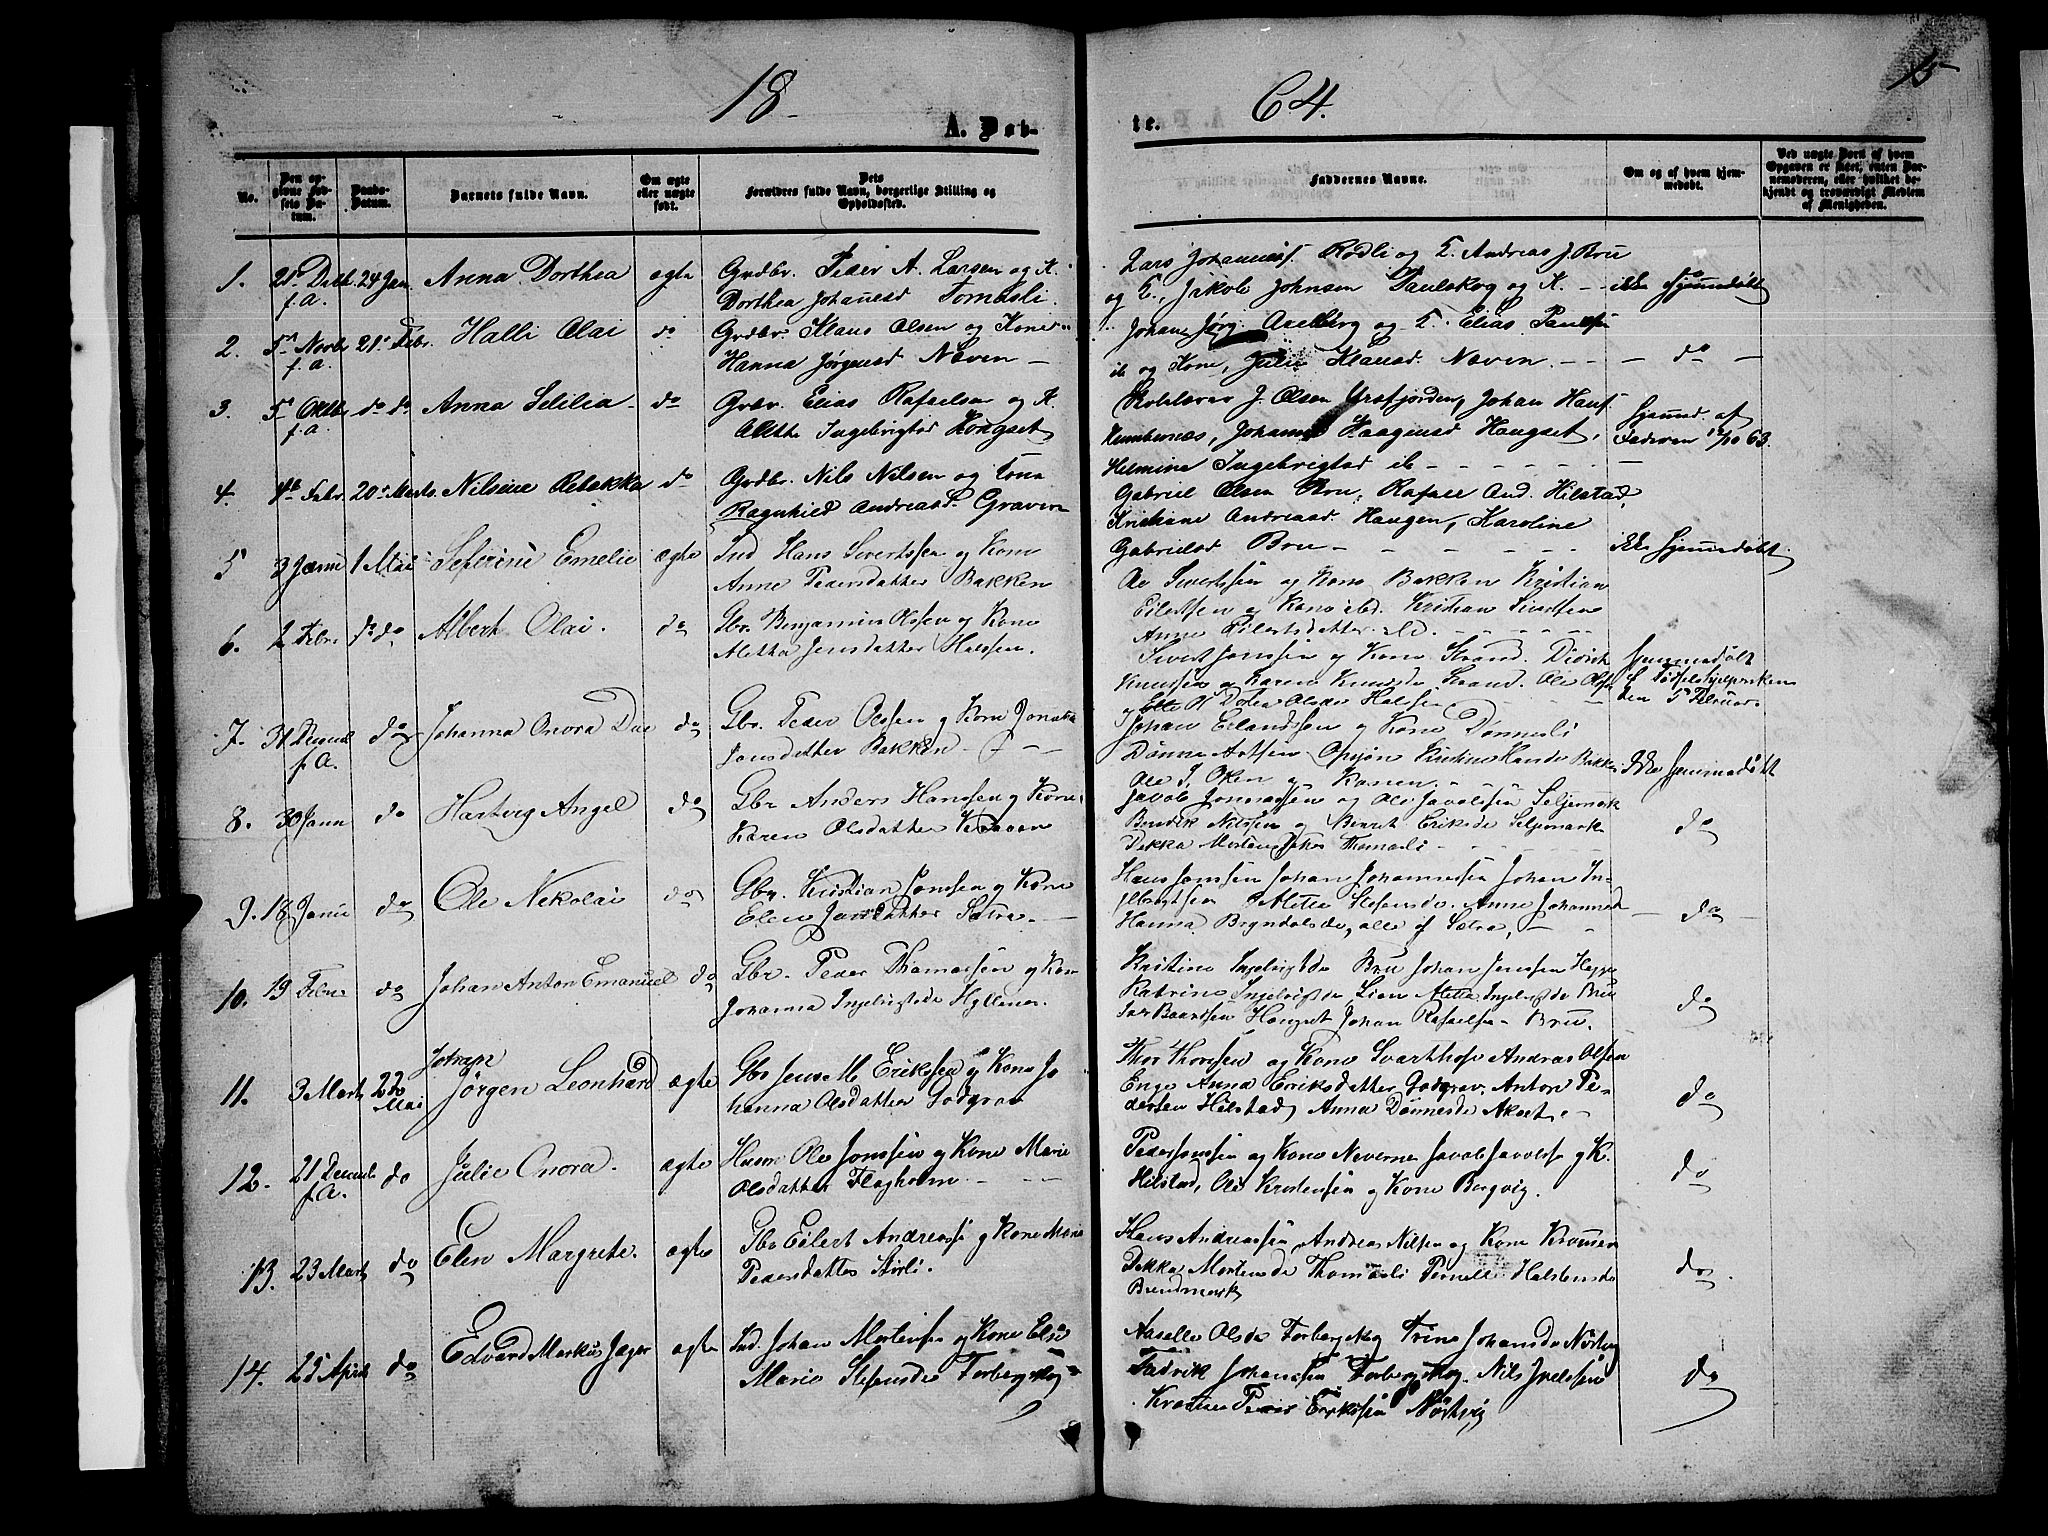 18
64.
15
A. Døb-
te.
No.
Den op-
givne Fød-
sels Da-
tum.
Daabs-
Datum.
Barnets fulde Navn.
Om ægte
eller uægte
født.
Dets
Forældres fulde Navn, borgerlige Stilling og
Opholdssted.
Faddernes Navne.
Om og af hvem hjem-
medøbt.
Ved uægte Børn af hvem
Opgaven er skeet, enten Bar-
nemoderen, eller hvilket be-
kjendt og troværdigt Medlem
af Menigheden.
1. 21de Decb. 24 Jan Anna Dorthea ægte Grdbr. Peder A. Larsen og K.
f.A. Dorthea Johanesd Tomasli.
Lars Johannes. Rødli og K. Andreas J. Bru
og K., Jakob Johnsen Paulskog og K. - - ikke hjemmedøbt
2. 5te Novb. 21de Febr. Halli Olai do Grdbr. Klaus Olsen og Kone
f.a. Hanna Jørgensd Neven -
Johan Jørg. Axelberg og K. Elias Paulsen
ib og Kone, Julie Klausd. Neven. - - - do -
3. 5te Oktb. do do Anna Selilia do Grdbr. Elias Rafaelsen og K.
f.a. Aletta Ingebrigtsd Kongset
Skolelærer J. Olsen Urafjorden, Johan Hans.
Kumbernæs, Johanna Haagensd Haugset,
Helmine Ingebrigtsd ib - - - - -
hjemd. af
Faderen 7/10 63.
4. 4de Febr. 20de Marts. Nilsine Rebekka do Grdbr. Nils Nilsen og Kone
Ragnhild Andreasd. Graven
Gabriel Olsen Bru, Rafael And. Hilstad,
Kristiane Andreasd. Haugen, Karoline
Gabrielsd Bru - - - - - ikke hjemmedøbt.
5 3 Janu 1 Mai Seferine Emelie ægte Ind Hans Sivertssen og Kone
Anne Pedersdatter Bakken
Ole Sivertssen og Kone Bakken Kristian
Eilertsen og Kone ibd. Kristian Sivertsen
Anne Eilertsdatter ibd. - - - -
6. 2 Febr do do Albert Olai. do Gbr. Benjamin Olssen og Kone
Aletta Jensdatter Halsen.
Sivert Jonssen og Kone Strand. Didrik
Knutssen og Karen Knutsda Strand. Ole Olssen
og Dotea Olsda Halsen
hjemmedøbt
af Fødselshjelpersken
den 5 Februar
7. 31 Decemb do Johanna Onora Dae do Gbr. Peder Olssen og Kone Jonetta
f A. Jonsdatter Bakken - - -
Johan Erlandssen og Kone Dønnesli
Dønne Antsen Opsjøn Kristine Hansda Bakken
Ole J. Oken og Konen, - Ikke hjemmedøbt
8. 30 Janu do Hartvig Angel do Gbr Anders Hanssen og Kone
Karen Olsdatter Kraaen
Jakob Jonassen og Ole Jakobsen Seljemark
Bendik Nilssen og Berret Eriksda Seljemark
Dekka Mortensdatter Thomasli - - - do
9. 18 Janu do Ole Nekolai do Gbr. Kristian Jonssen og Kone
Elen Jonsdatter Sætra. -
Hans Jonssen Johan Johannessen Johan In-
gebrigtsen Aletta Stefensda. Anne Johannesd
Hanna Bryndelsda, alle af Sætra, - - do -
10. 19 Febr do Johan Anton Emanuel do Gbr. Peder Thomassen og Kone
Johanna Ingebrigtsda Hyllenes.
Kristine Ingebrigtsda Bru Johan Jenssen Heppe
Katrine Ingebrigtsda Lien Aletta Ingebrigtsda Bru
Iver Baardsen Hongset Johan Rafaelsen Bru. do
11. 3 Marts 22de Mai Johan
Jørgen Leonhard ægte Gbr Jens M. Erikssen og Kone Jo
hanna Olsdatter Godgrav
Thor Thorssen og Kone Svarthofv Andreas Olsen
Enge Anna Eriksdatter Godgrav. Anton Pe-
dersen Hilstad, Anna Dønnesda Akset. - do
12. 21 Decemb f A. do Julie Onora. ægte Husm Ole Jonssen og Kone Marie
Olsdatter Flagholm. - - -
Peder Jonssen og Kone Neverne Jakob Jakobsen og K.
Hilstad, Ole Kristensen og Kone Borgvig. do
13. 23 Marts do Elen Margrete. ægte Gbr Eilert Andreassen og Kone Marie
Pedersdatter Storli.
Hans Andreassen Andreas Nilsen og Kone Kraaen
Dekka Mortensda Thomasli Pernelle Halstensda
Brendmark do
14. 25 April do Edvard Markus Jager ægte Ind. Johan Mortensen og Kone Else
Marie Stefensda Forbergskog
Aaselle Olsda Forbergskog Trine Johansda Nortvig
Fredrik Johanssen Forbergskog. Nils Joelssen
Kristian Peder Erikssen Nortvig do